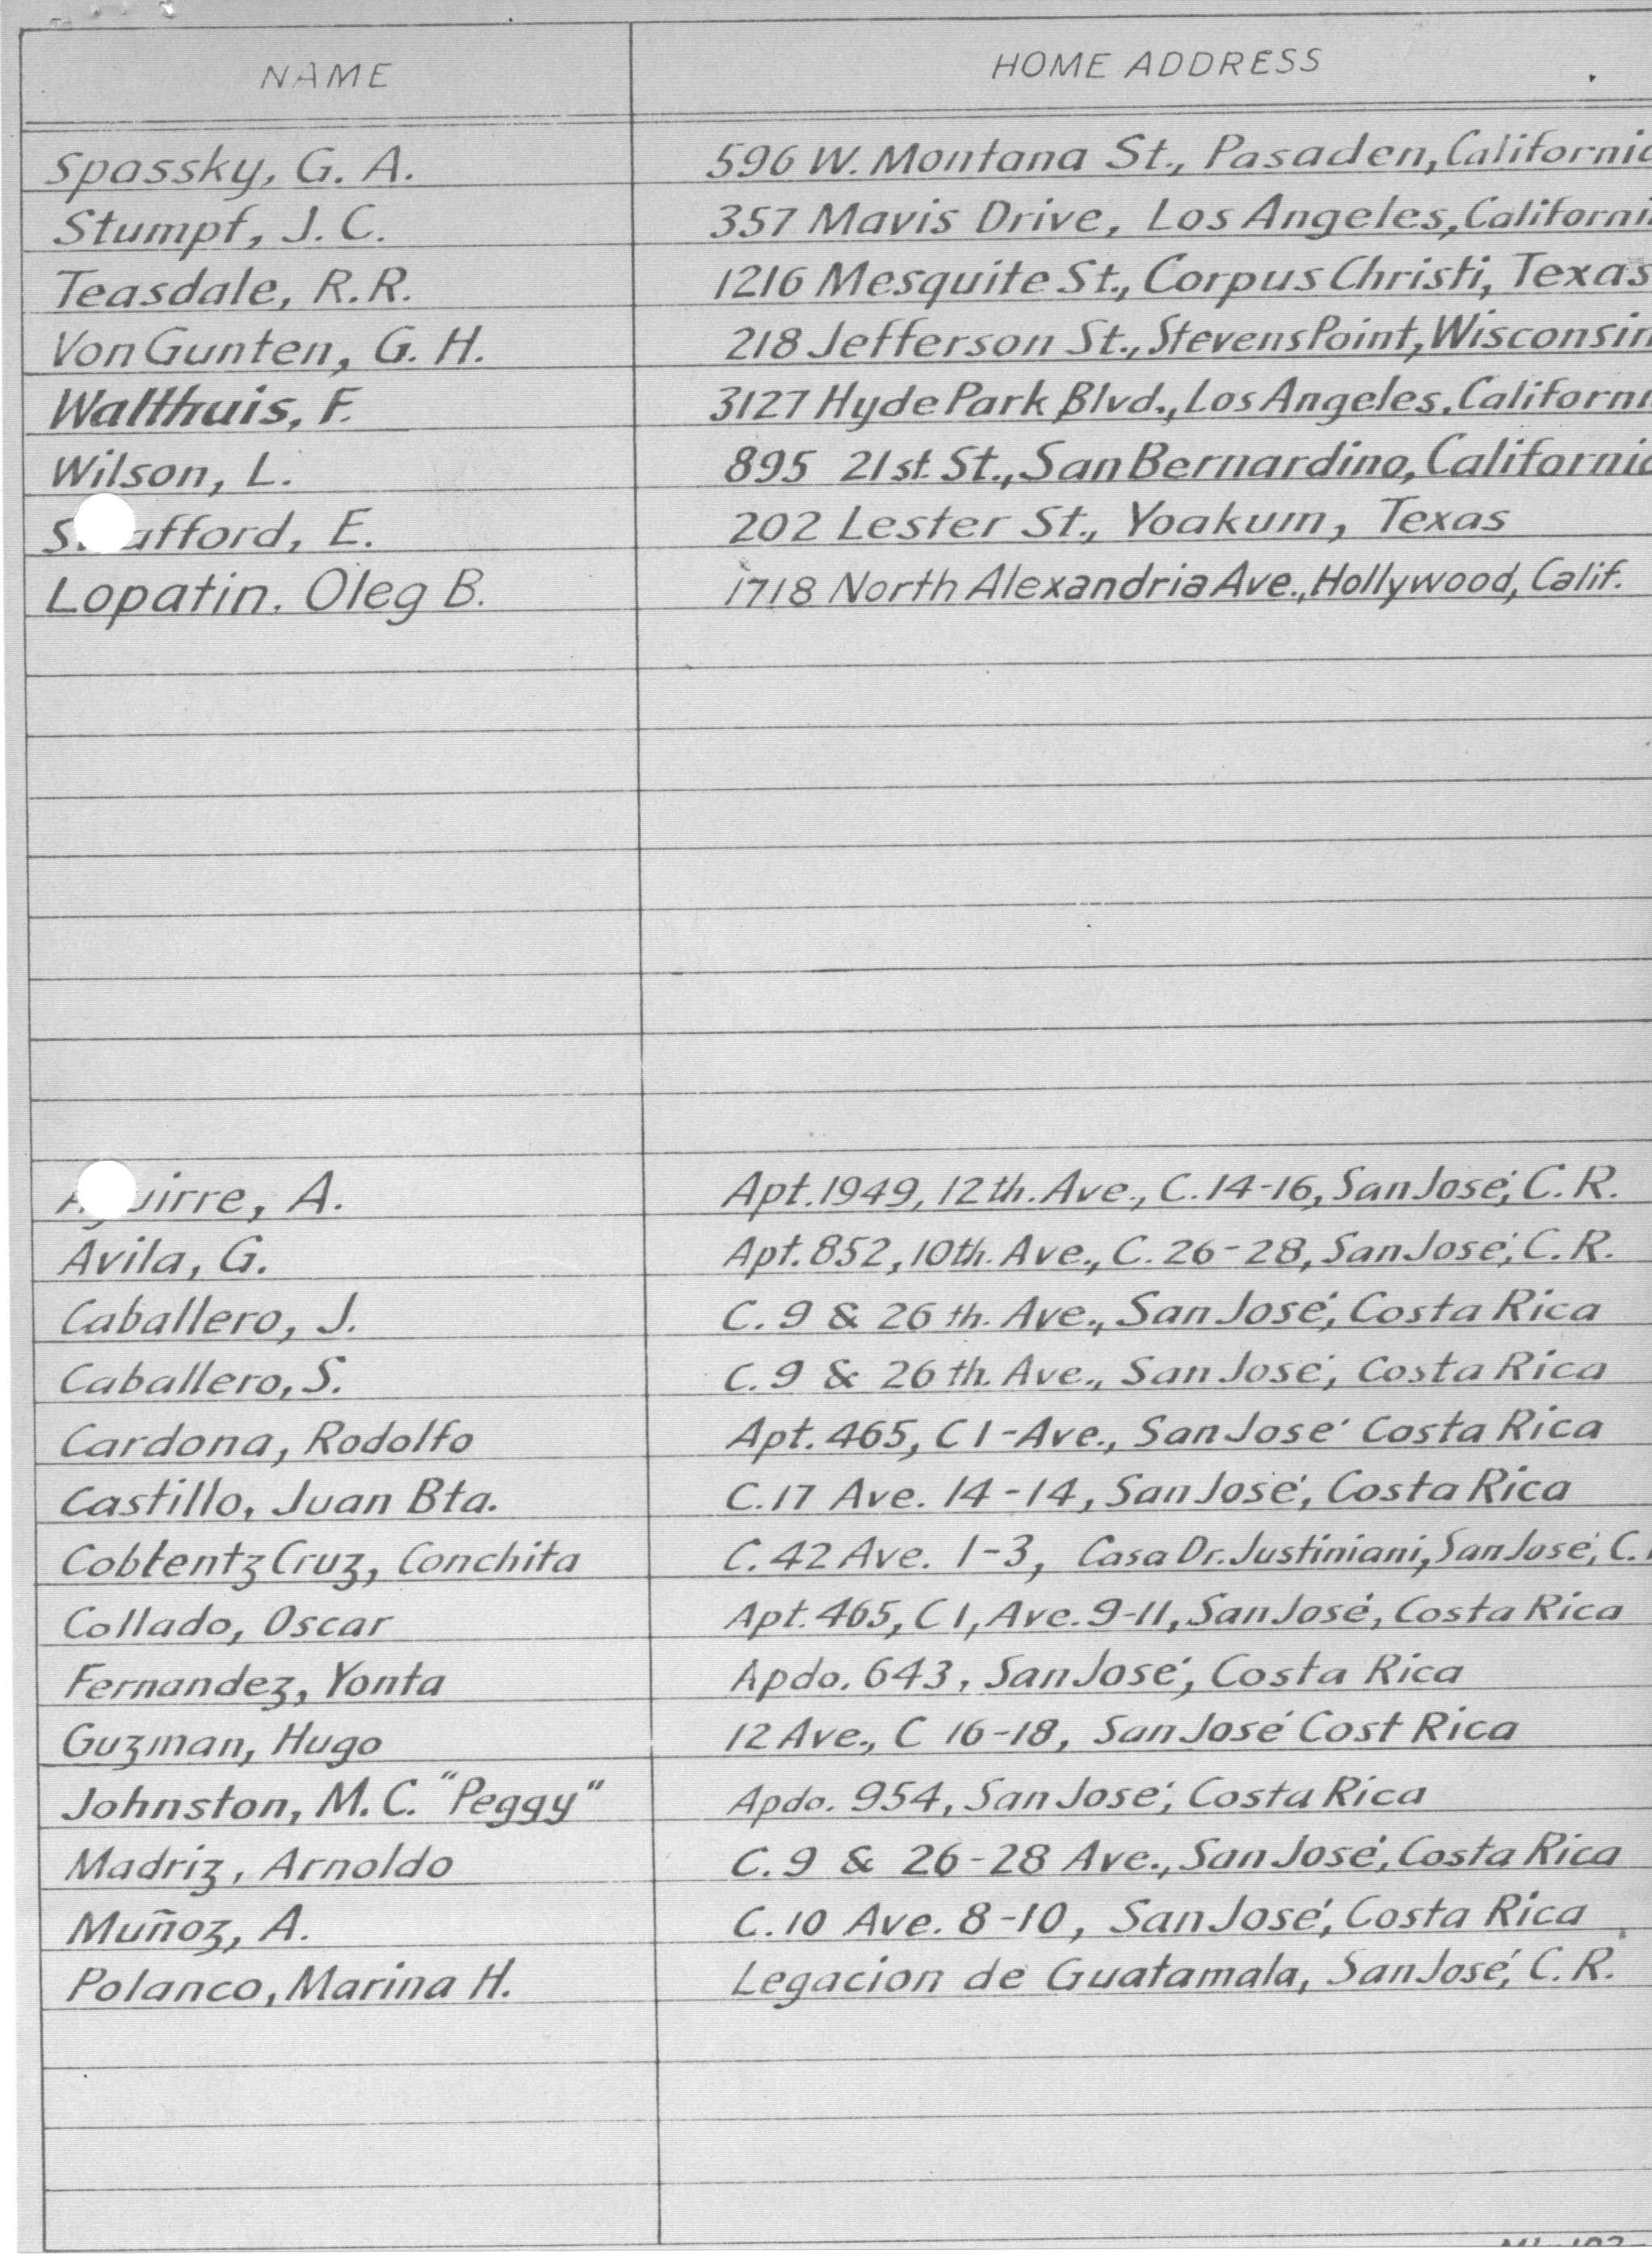 NAME HOME ADDRESS
Spassky, G. A. 596 W. Montana St., Pasaden, California
Stumpf, J. C. 357 Mavis Drive, Los Angeles, Californi
Teasdale, R.R. 1216 Mesquite St., Corpus Christi, Texas
Von Gunten, G. H. 218 Jefferson St., Stevens Point, Wisconsin
Walthuis, F. 3127 Hyde Park Blvd., Los Angeles, Californi
Wilson, L. 895 21st. St., San Bernardino, California
E. 202 Lester St., Yoakum, Texas
Lopatin, Oleg B. 1718 North Alexandria Ave., Hollywood, Calif.
A. Apt. 1949, 12th. Ave., C. 14-16, San José, C. R.
Avila, G. Apt. 852, 10th. Ave., C. 26-28, San José, C. R.
Caballero, J. C. 9 & 26 th. Ave., San José, Costa Rica
Caballero, S. C. 9 & 26 th. Ave., San José, Costa Rica
Cardona, Rodolfo Apt. 465, C 1-Ave., San José Costa Rica
Castillo, Juan Bta. C. 17 Ave. 14-14, San José, Costa Rica
Coblentz Cruz, Conchita C. 42 Ave. 1-3, Casa Dr. Justiniani, San José, C.
Collado, Oscar Apt. 465, C 1, Ave. 9-11, San José, Costa Rica
Fernandez, Yonta Apdo. 643, San José, Costa Rica
Guzman, Hugo 12 Ave., C 16-18, San José Cost Rica
Johnston, M. C. "Peggy" Apdo. 954, San José, Costa Rica
Madriz, Arnoldo C. 9 & 26-28 Ave., San José, Costa Rica
Muñoz, A. C. 10 Ave. 8-10, San José, Costa Rica
Polanco, Marina H. Legacion de Guatamala, San José, C. R.